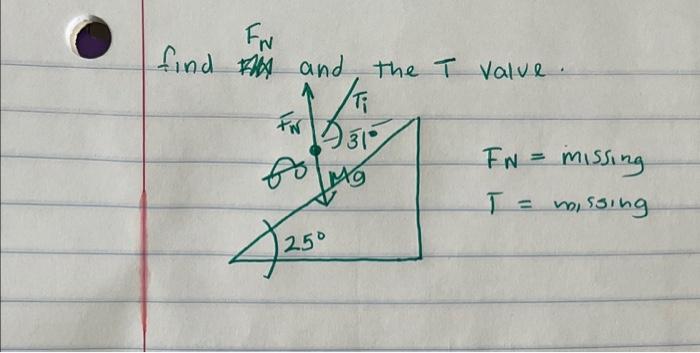 FN
find and the T value.
Ti
FN
31°
Mg
25°
FN = missing
T = missing